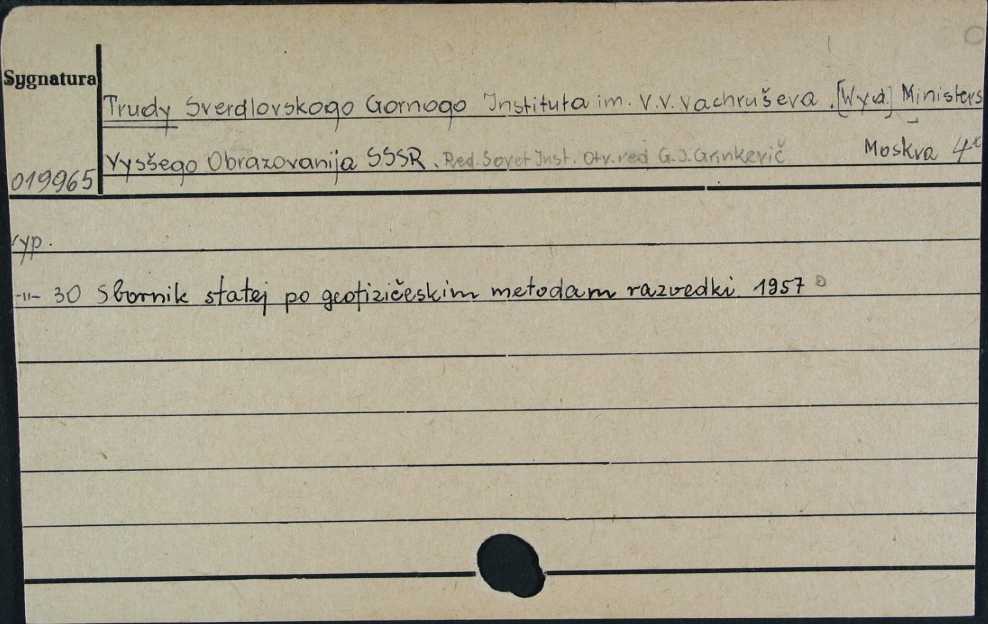 Sygnatura
Trudy Sverdlovskogo Gornogo Instituta im. V.V. Vachruševa. [Wyd.] Ministers
Vysšego Obrazovanija SSSR. Red. Sovet Inst. Otv. red G.J. Grinkevič Moskva 4°
019965
Vyp.
-"- 30 Sbornik statej po geofizičeskim metodam razvedki. 1957